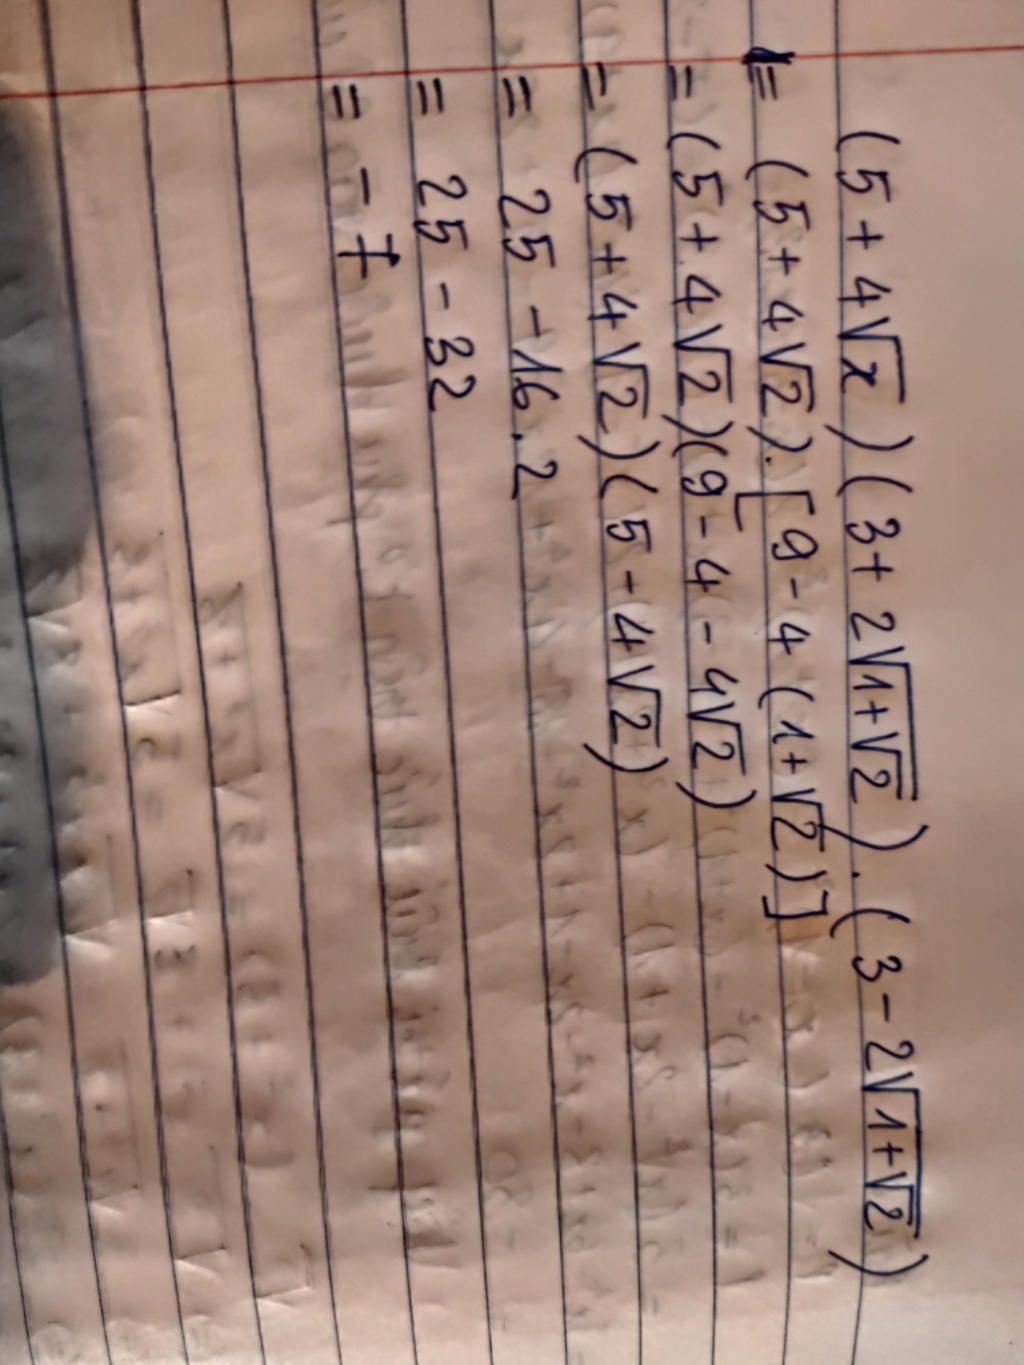 (5 + 4√x)(3 + 2√(1+√2)).(3 - 2√(1+√2))
= (5 + 4√2).[9 - 4(1+√2)]
= (5 + 4√2)(9 - 4 - 4√2)
= (5 + 4√2)(5 - 4√2)
= 25 - 16.2
= 25 - 32
= -7